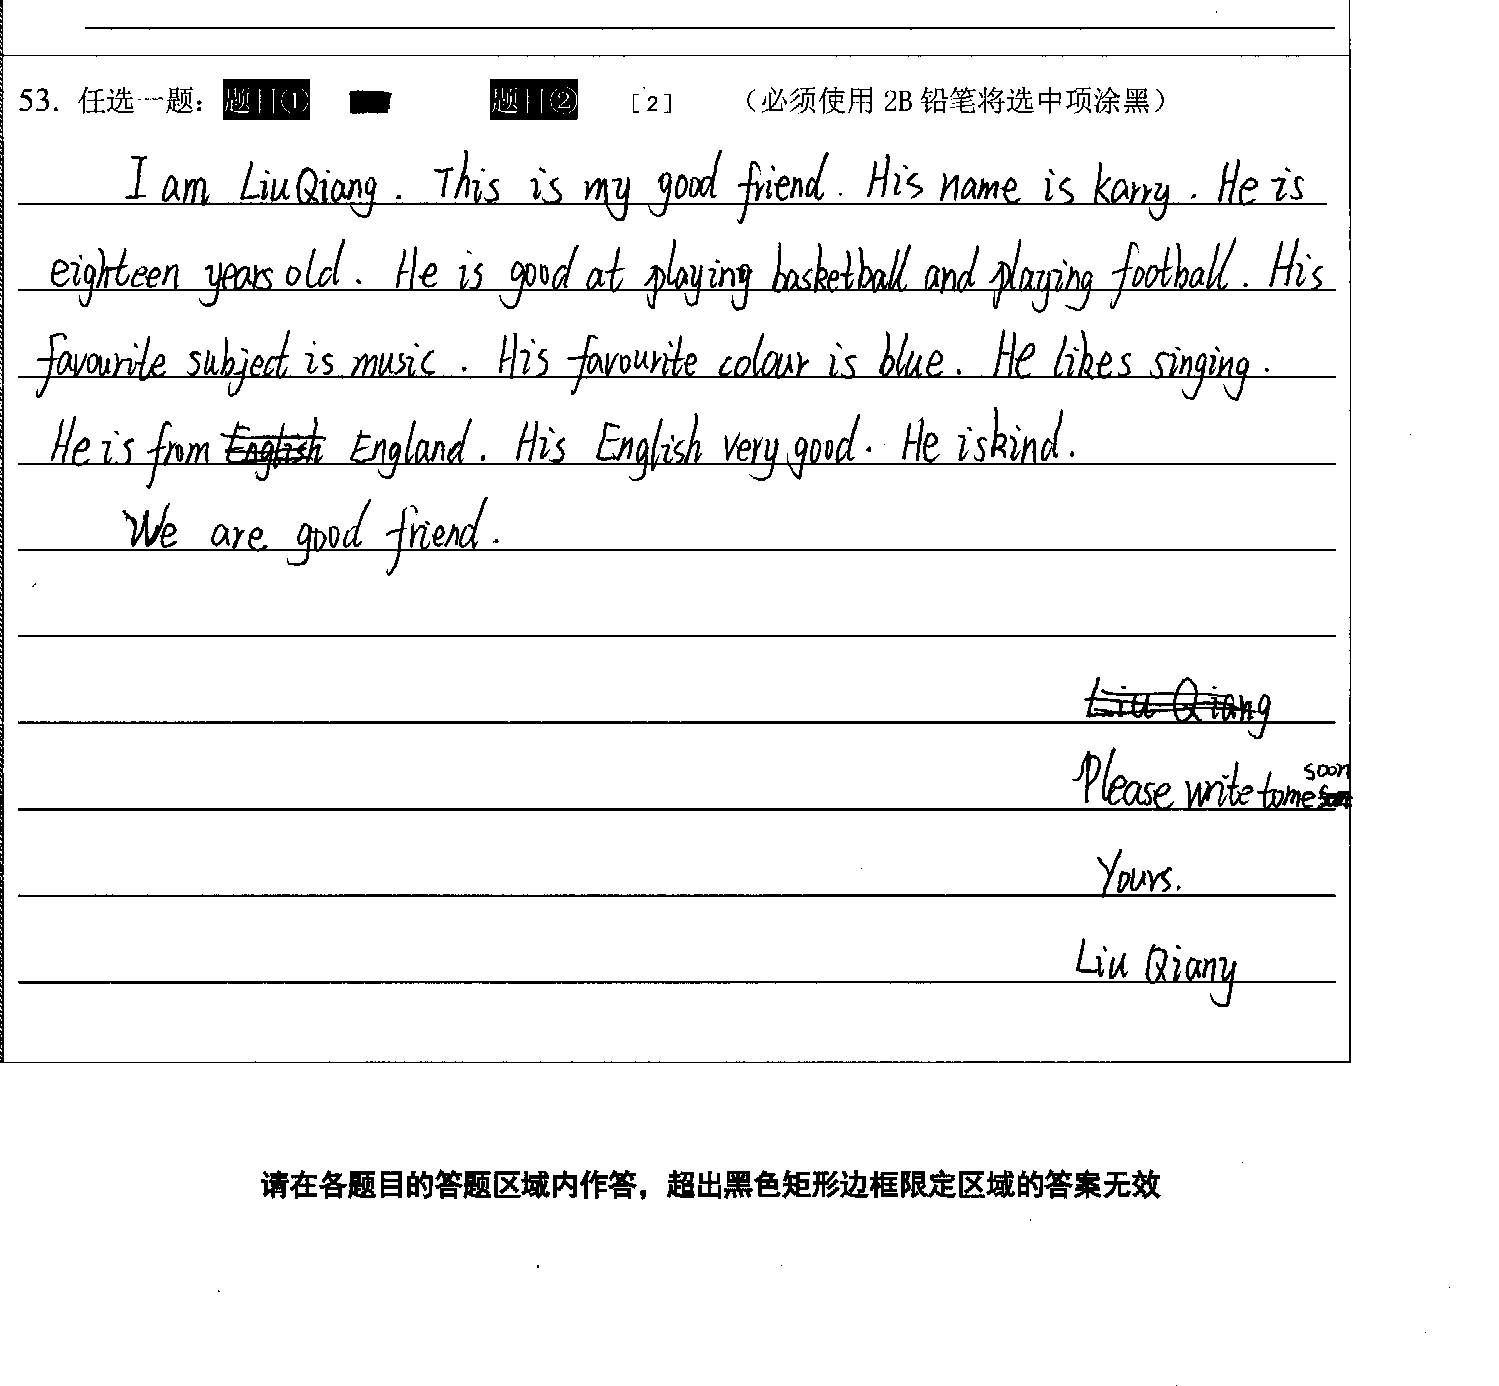 53. 任选一题： 题目① 题目② [2] （必须使用 2B 铅笔将选中项涂黑）
I am Liu Qiang. This is my good friend. His name is karry. He is
eighteen years old. He is good at playing basketball and playing football. His
favourite subject is music. His favourite colour is blue. He likes singing.
He is from English England. His English very good. He is kind.
We are good friend.
Liu Qiang
soon
Please write to me
Yours.
Liu Qiany
请在各题目的答题区域内作答，超出黑色矩形边框限定区域的答案无效